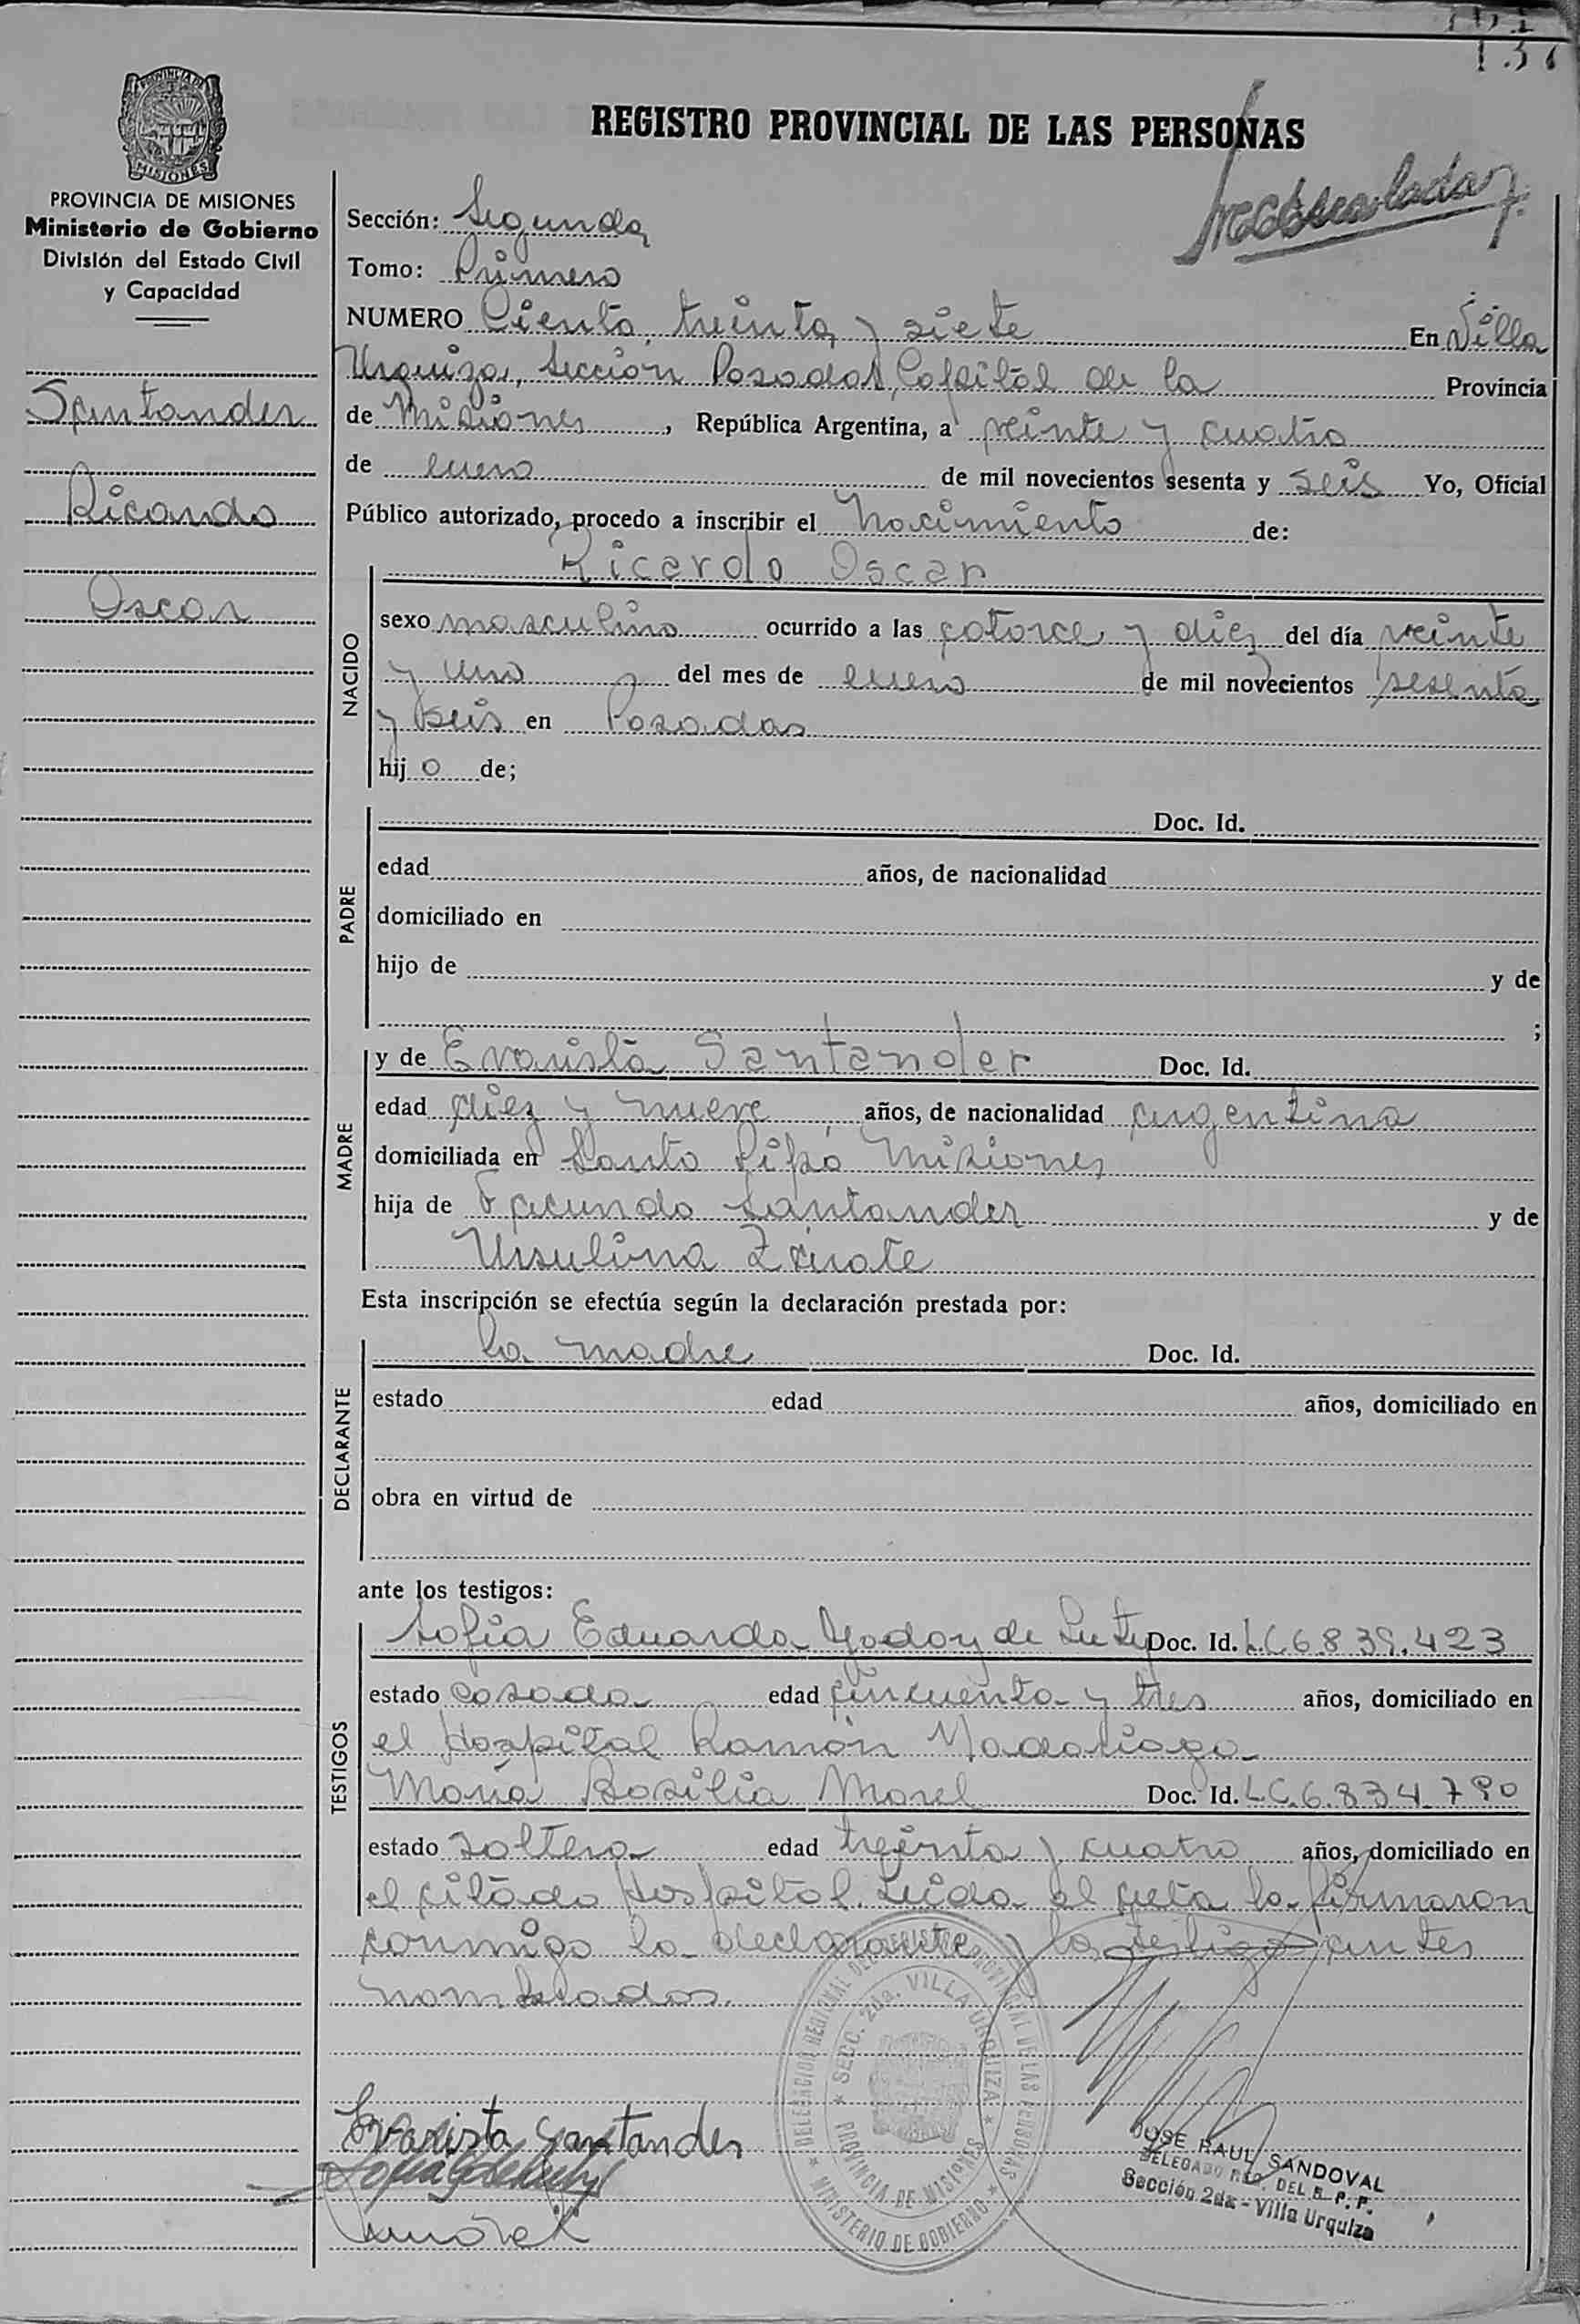 137
REGISTRO PROVINCIAL DE LAS PERSONAS
PROVINCIA DE MISIONES
Ministerio de Gobierno
División del Estado Civil
y Capacidad
Santander
Ricardo
Oscar
Sección: Segunda
Tomo: Primero
NUMERO Ciento treinta y siete En Villa
Urquiza, Sección Posadas, Capital de la Provincia
de Misiones, República Argentina, a veinte y cuatro
de enero de mil novecientos sesenta y seis Yo, Oficial
Público autorizado, procedo a inscribir el Nacimiento de:
NACIDO
Ricardo Oscar
sexo masculino ocurrido a las catorce y diez del día veinte
y uno del mes de enero de mil novecientos sesenta
y seis en Posadas
hijo de;
PADRE
Doc. Id.
edad años, de nacionalidad
domiciliado en
hijo de y de
;
MADRE
y de Evarista Santander Doc. Id.
edad diez y nueve años, de nacionalidad argentina
domiciliada en Santo Pipó Misiones
hija de Facundo Santander y de
Ursulina Zárate
Esta inscripción se efectúa según la declaración prestada por:
DECLARANTE
la madre Doc. Id.
estado edad años, domiciliado en
obra en virtud de
ante los testigos:
TESTIGOS
Sofía Eduarda Godoy de Doc. Id. L.C 6.839.423
estado casada edad cincuenta y tres años, domiciliado en
el Hospital Ramón Madariaga
María Basilia Morel Doc. Id. L.C. 6.834.790
estado soltera edad treinta y cuatro años, domiciliado en
el citado Hospital. Leída el acta la firmaron
conmigo la declarante y los testigos antes
nombrados.
DELEGACION REGIONAL DEL REGISTRO PROVINCIAL DE LAS PERSONAS
SECC. 2da. VILLA URQUIZA
PROVINCIA DE MISIONES
MINISTERIO DE GOBIERNO
Evarista Santander
JOSE RAUL SANDOVAL
DELEGADO REG. DEL R. P. P.
Sección 2da - Villa Urquiza